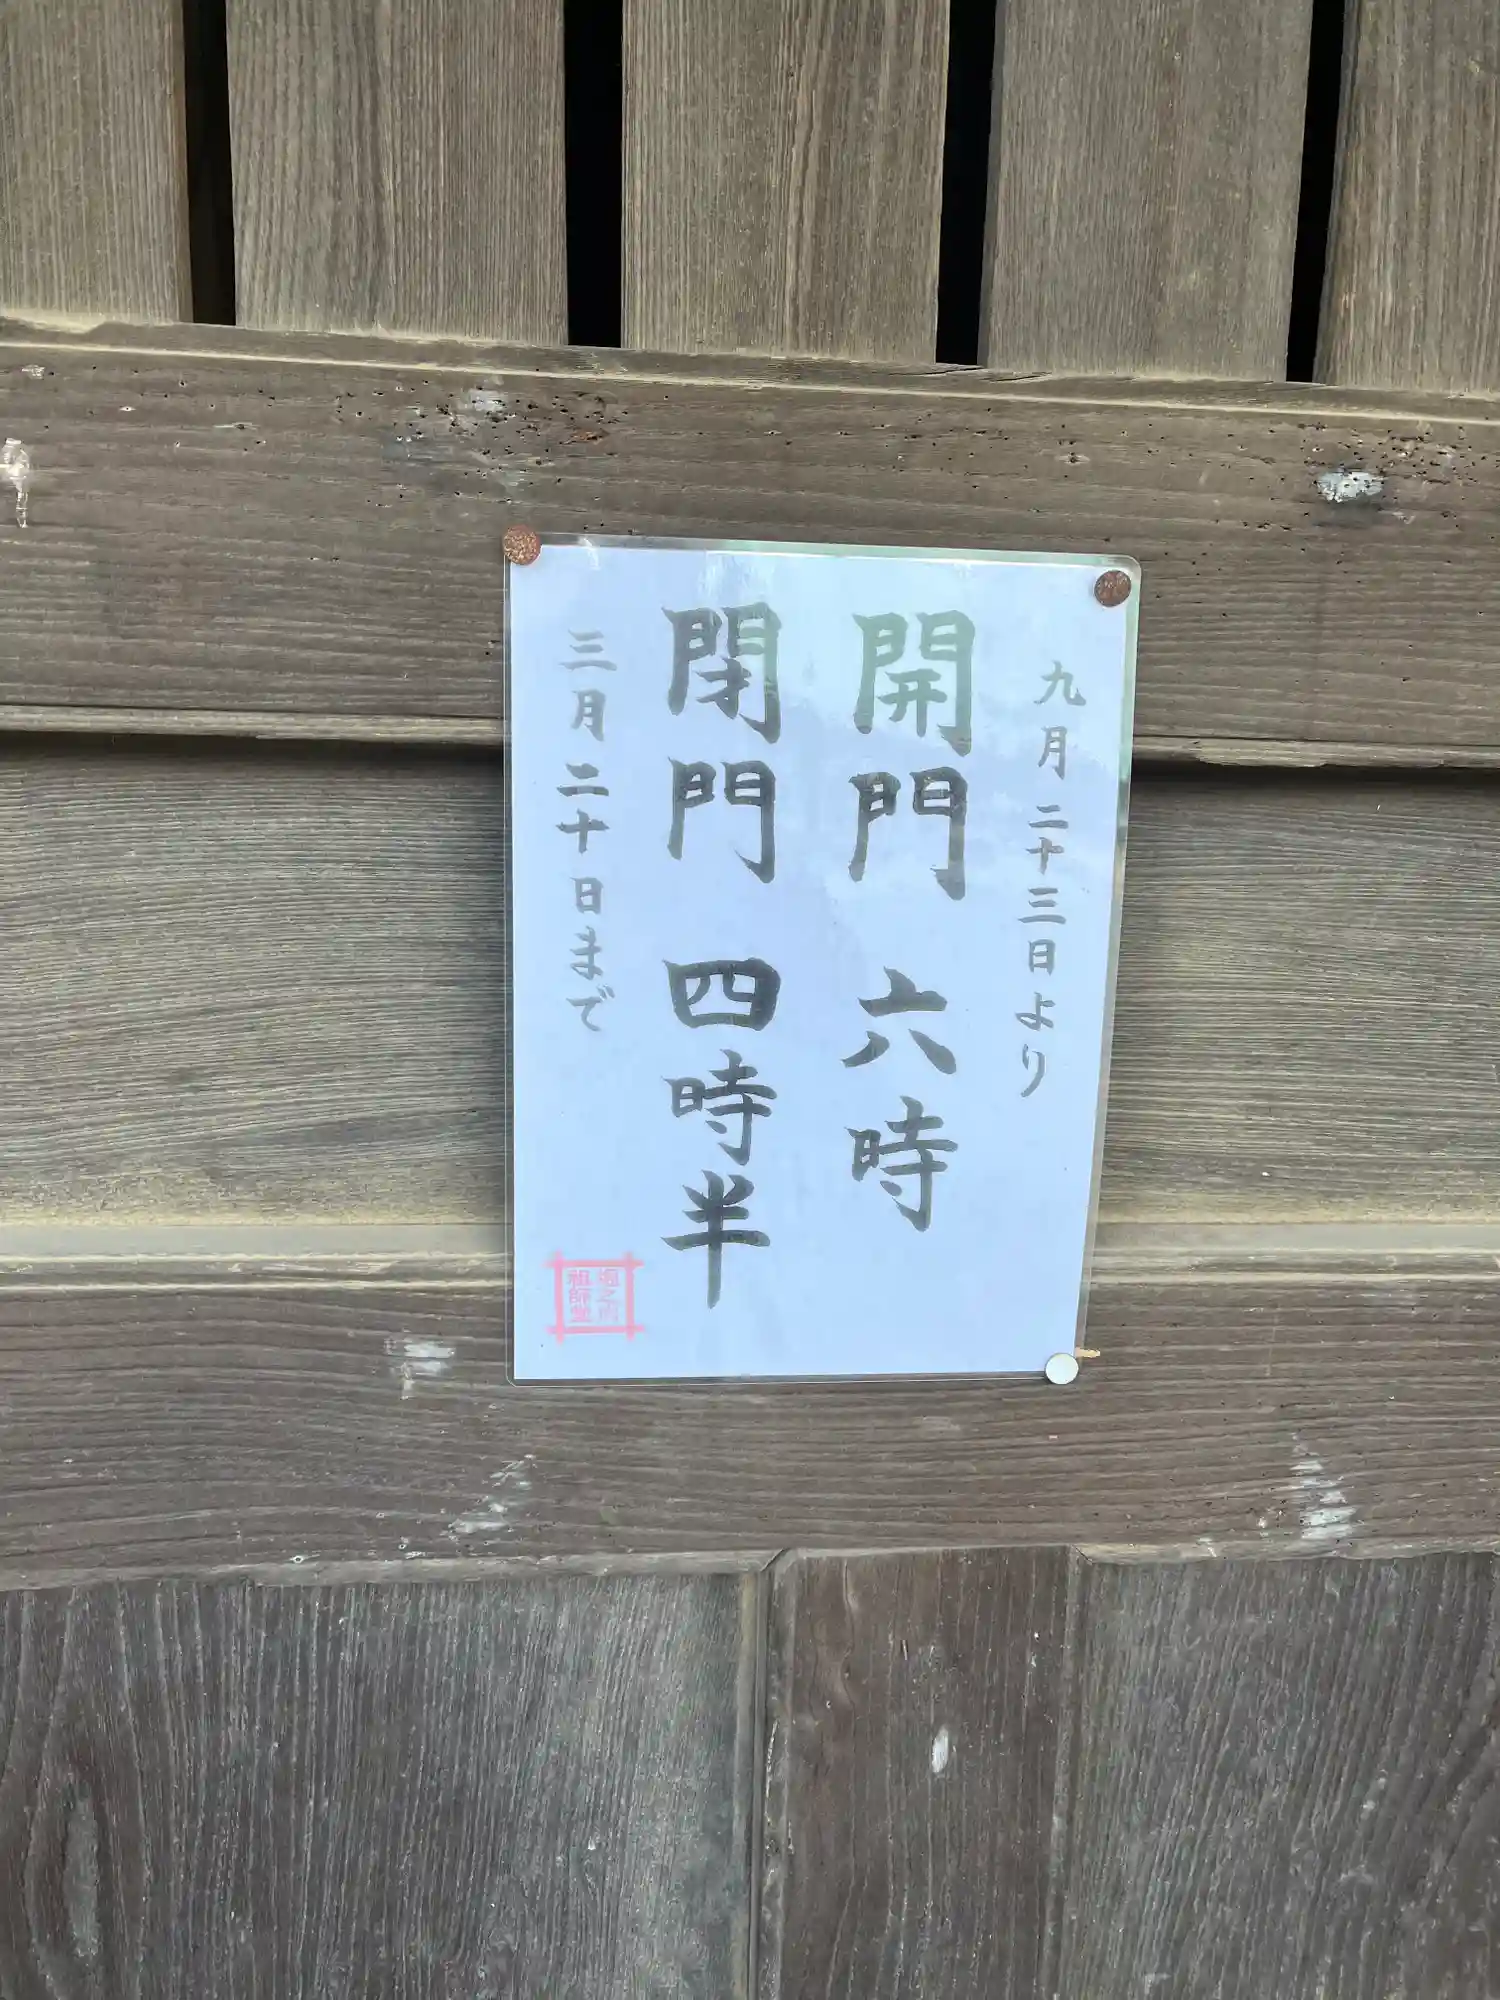 九月二十三日より
開門 六時
閉門 四時半
三月二十日まで
堀之内
祖師堂